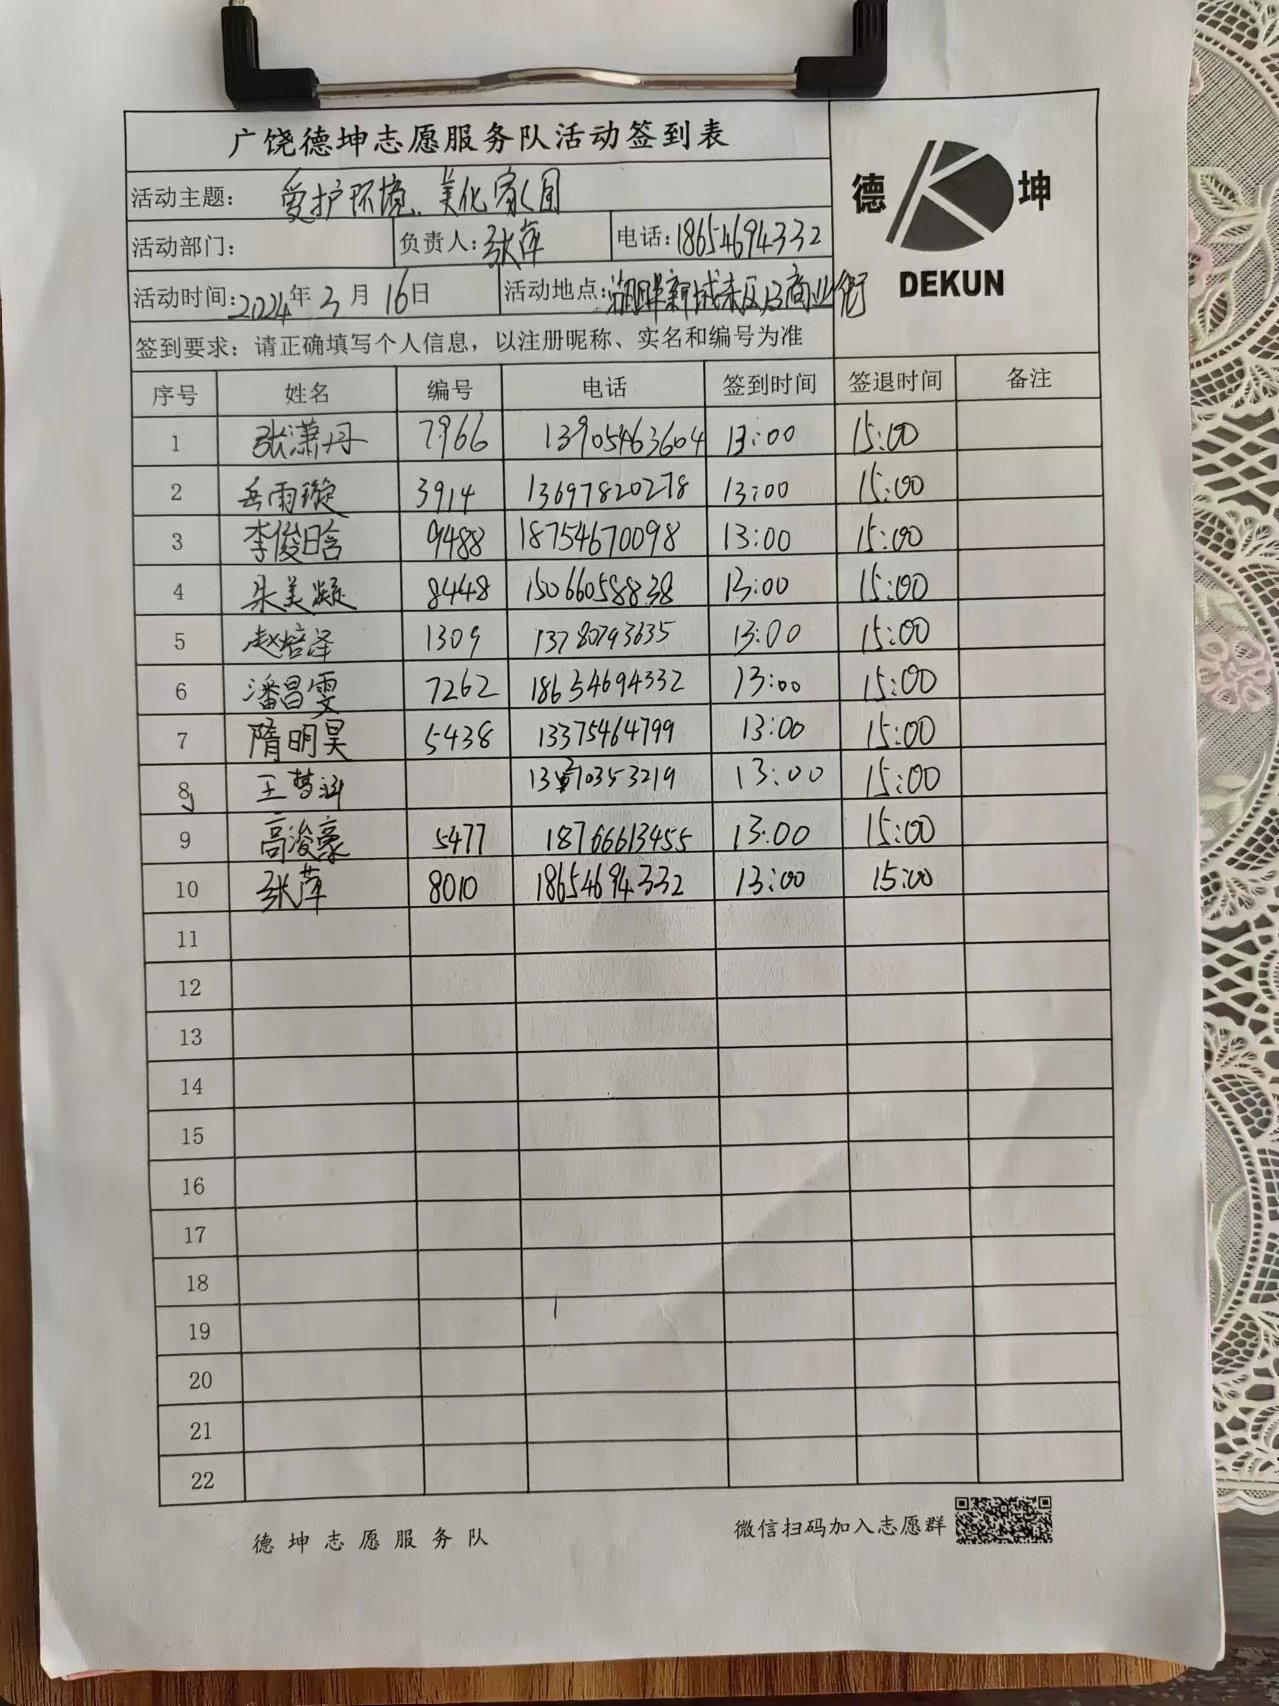 广饶德坤志愿服务队活动签到表
德 坤
DEKUN
活动主题： 爱护环境、美化家园
活动部门： 负责人：张萍 电话：18654694332
活动时间：2024年3月16日 活动地点：湖畔新城 商业街
签到要求：请正确填写个人信息，以注册昵称、实名和编号为准
序号 姓名 编号 电话 签到时间 签退时间 备注
1 张潇丹 7966 13905463604 13:00 15:00
2 岳雨璇 3914 13697820278 13:00 15:00
3 李俊晗 9488 18754670098 13:00 15:00
4 朱美凝 8448 15066058838 13:00 15:00
5 赵培泽 1309 13780793635 13:00 15:00
6 潘昌雯 7262 18654694332 13:00 15:00
7 隋明昊 5438 13375464799 13:00 15:00
8 王梦涵 13:00 15:00
9 高浚豪 5477 18766613455 13:00 15:00
10 张萍 8010 18654694332 13:00 15:00
11
12
13
14
15
16
17
18
19
20
21
22
德坤志愿服务队 微信扫码加入志愿群